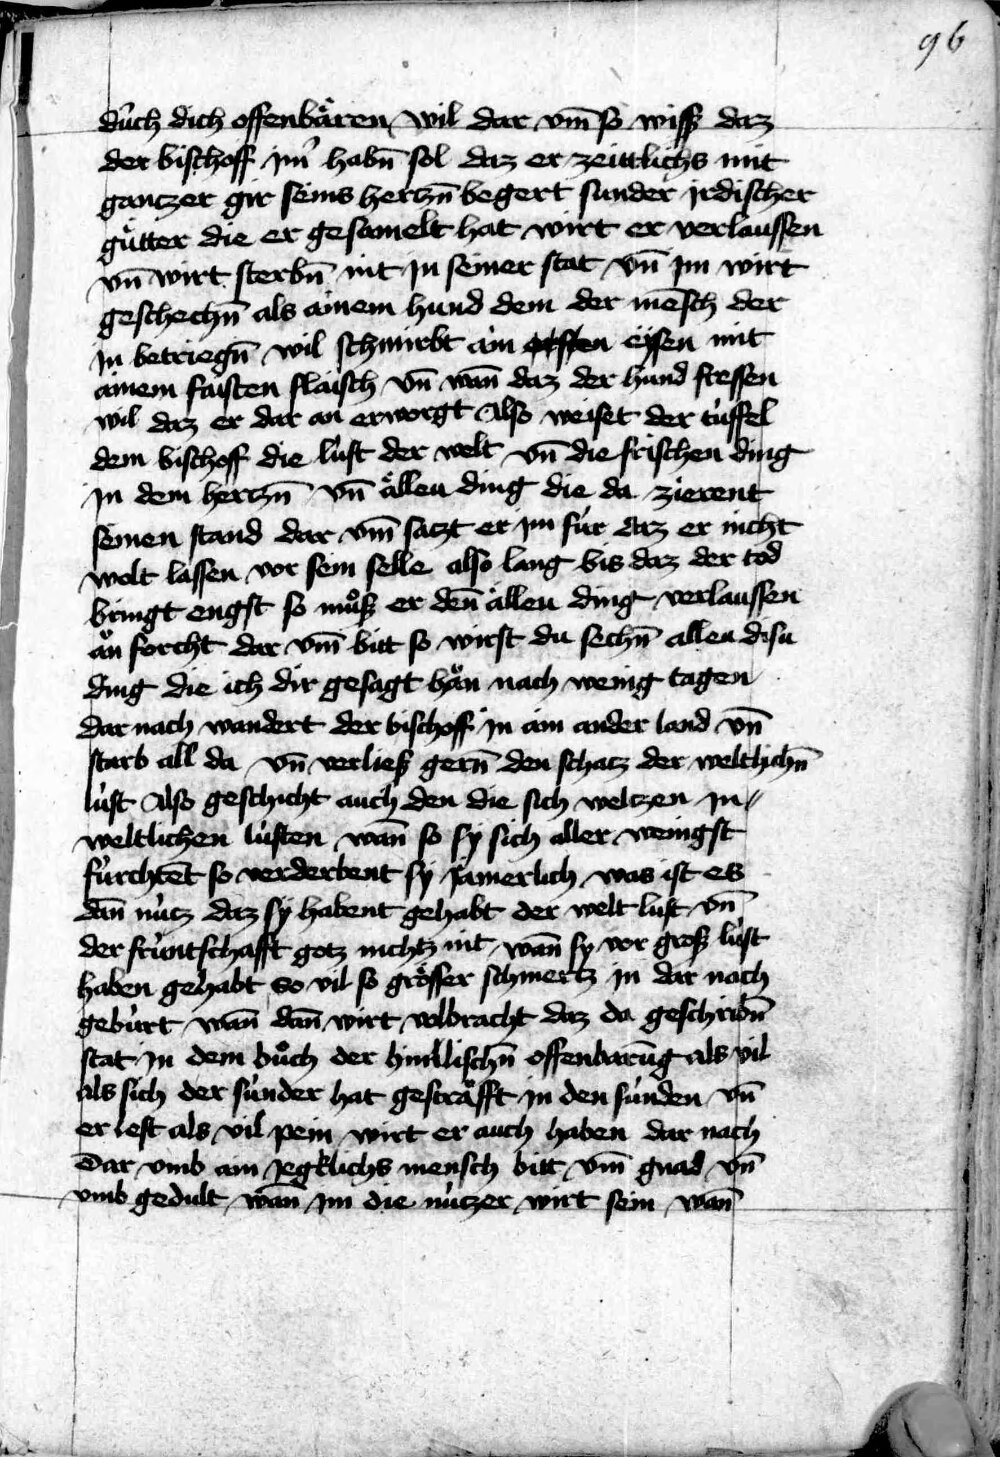 96
dùch dich offenbären wil dar vm̄ so wiss daz
der bischoff im̄ habn̄ sol daz er zeittlichs mit
ganczer gir seins herczn̄ begert sunder jrdischer
gütter die er gesamelt hat wirt er verlaussen
vn̄ wirt sterbn̄ nit jn seiner stat vn̄ jm wirt
geschechn̄ als ainem hund dem der mēsch der
jn betriegn̄ wil schmirbt ain eysen mit
ainem faisten flaisch vn̄ wan̄ daz der hund fressen
wil daz er dar an erworgt Also weiset der tùffel
dem bischoff die lùst der welt vn̄ die frischen ding
jn dem herczn̄ vn̄ ällen ding die da zierent
seinen stand dar vm̄ saczt er jm fùr daz er nicht
wolt lassen vor sein selle also lang bis daz der tod
bringt engst so můß er den̄ ällen ding verlaussen
ån forcht dar vm̄ bitt so wirst du sechn̄ allen disu
ding die ich dir gesagt hån nach wenig tagen
dar nach wandert der bischoff jn ain ander land vn̄
starb all da vn̄ verließ gern̄ den schacz der weltlichn̄
lùst Also geschicht auch den die sich welczen jn
weltlichen lùsten wan̄ so sy sich aller wenigst
fùrchtēt so verderbent sy jamerlich was ist es
dan̄ nùcz daz sy habent gehabt der welt lust vn̄
der frùntschafft gotz nichtz nit wan̄ sy vor groß lùst
haben gehabt so vil so grösser schmertz jn dar nach
gebùrt wan̄ dan̄ wirt volbracht daz da geschribn̄
stat jn dem bůch der himlischn̄ offenbarūg als vil
als sich der sùnder hat gesträfft jn den sùnden vn̄
er lest als vil pein wirt er auch haben dar nach
Dar vmb ain jegklichs mensch bitt vm̄ gnad vn̄
vmb gedult wan̄ jm die nùczer wirt sein wan̄